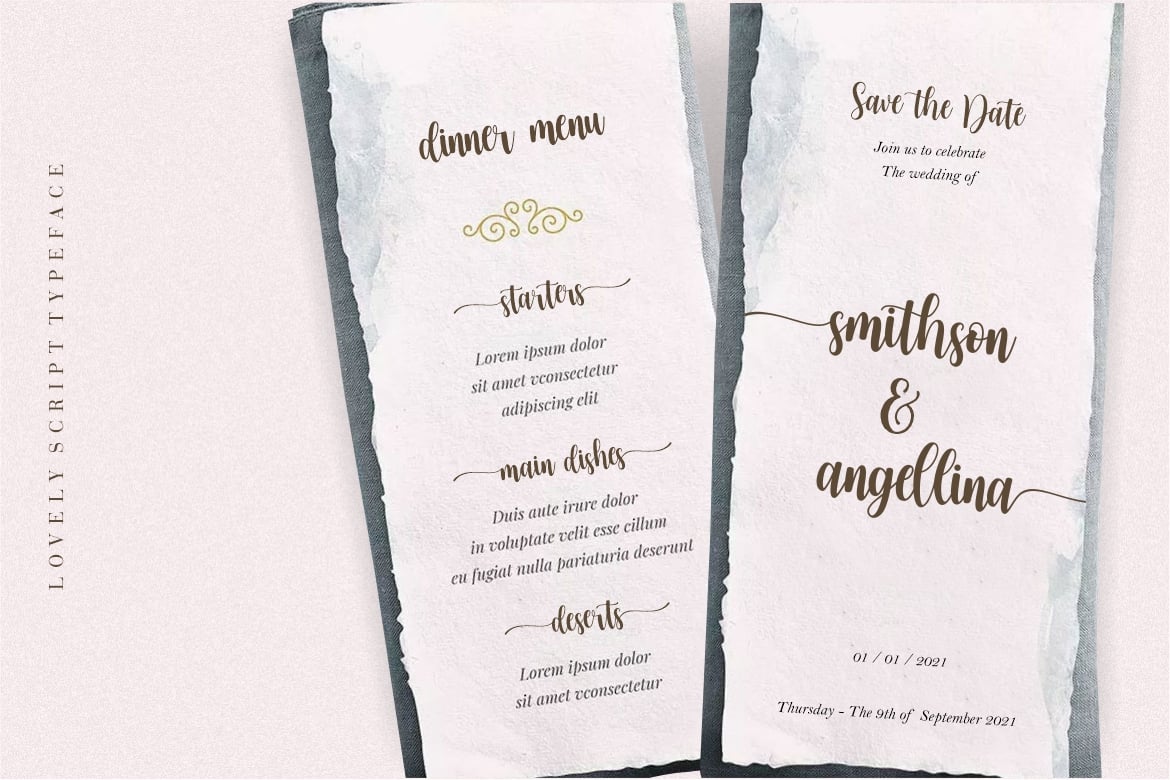 LOVELY SCRIPT TYPEFACE
dinner menu
starters
Lorem ipsum dolor
sit amet vconsectetur
adipiscing elit
main dishes
Duis aute irure dolor
in voluptate velit esse cillum
eu fugiat nulla pariaturia deserunt
deserts
Lorem ipsum dolor
sit amet vconsectetur
Save the Date
Join us to celebrate
The wedding of
smithson
&
angellina
01 / 01 / 2021
Thursday - The 9th of September 2021